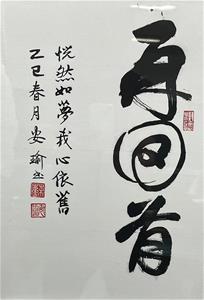 再回首
恍然如夢我心依舊
乙巳春月安瑜书